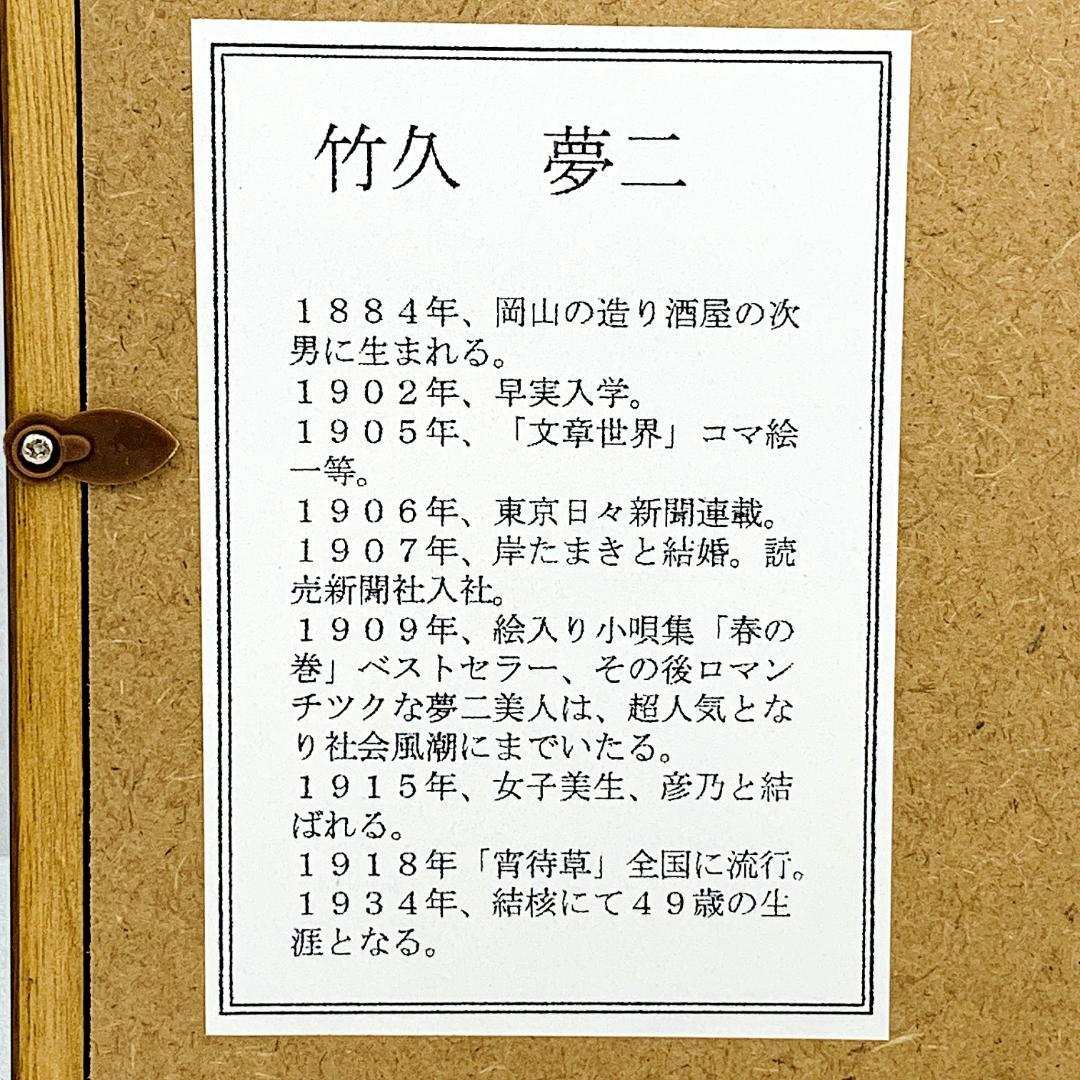 竹久　夢二
１８８４年、岡山の造り酒屋の次
男に生まれる。
１９０２年、早実入学。
１９０５年、「文章世界」コマ絵
一等。
１９０６年、東京日々新聞連載。
１９０７年、岸たまきと結婚。読
売新聞社入社。
１９０９年、絵入り小唄集「春の
巻」ベストセラー、その後ロマン
チツクな夢二美人は、超人気とな
り社会風潮にまでいたる。
１９１５年、女子美生、彦乃と結
ばれる。
１９１８年「宵待草」全国に流行。
１９３４年、結核にて４９歳の生
涯となる。